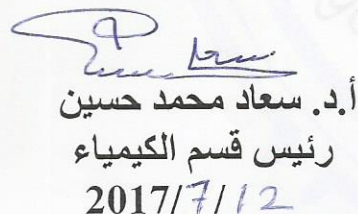 أ.د. سعاد محمد حسين
رئيس قسم الكيمياء
2017/7/12